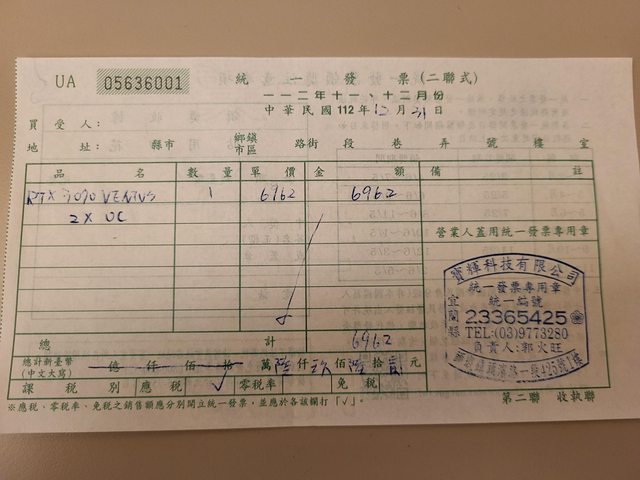 UA 05636001 統一發票(二聯式)
一一二年十一、十二月份
中華民國112年12月31日
買受人:
地址: 縣市 鄉鎮市區 路街 段 巷 弄 號 樓 室
品名 數量 單價 金額 備註
RTX 3070 VENTUS 1 6962 6962
2X OC
營業人蓋用統一發票專用章
寶輝科技有限公司
統一發票專用章
宜蘭縣
統一編號
23365425
TEL:(03)9773280
負責人:郭火旺
總計 6962
總計新臺幣(中文大寫) 億 仟 佰 拾 萬 陸 仟 玖 佰 陸 拾 貳 元
課稅別 應稅 √ 零稅率 免稅
※應稅、零稅率、免稅之銷售額應分別開立統一發票,並應於各該欄打「√」。
第二聯 收執聯